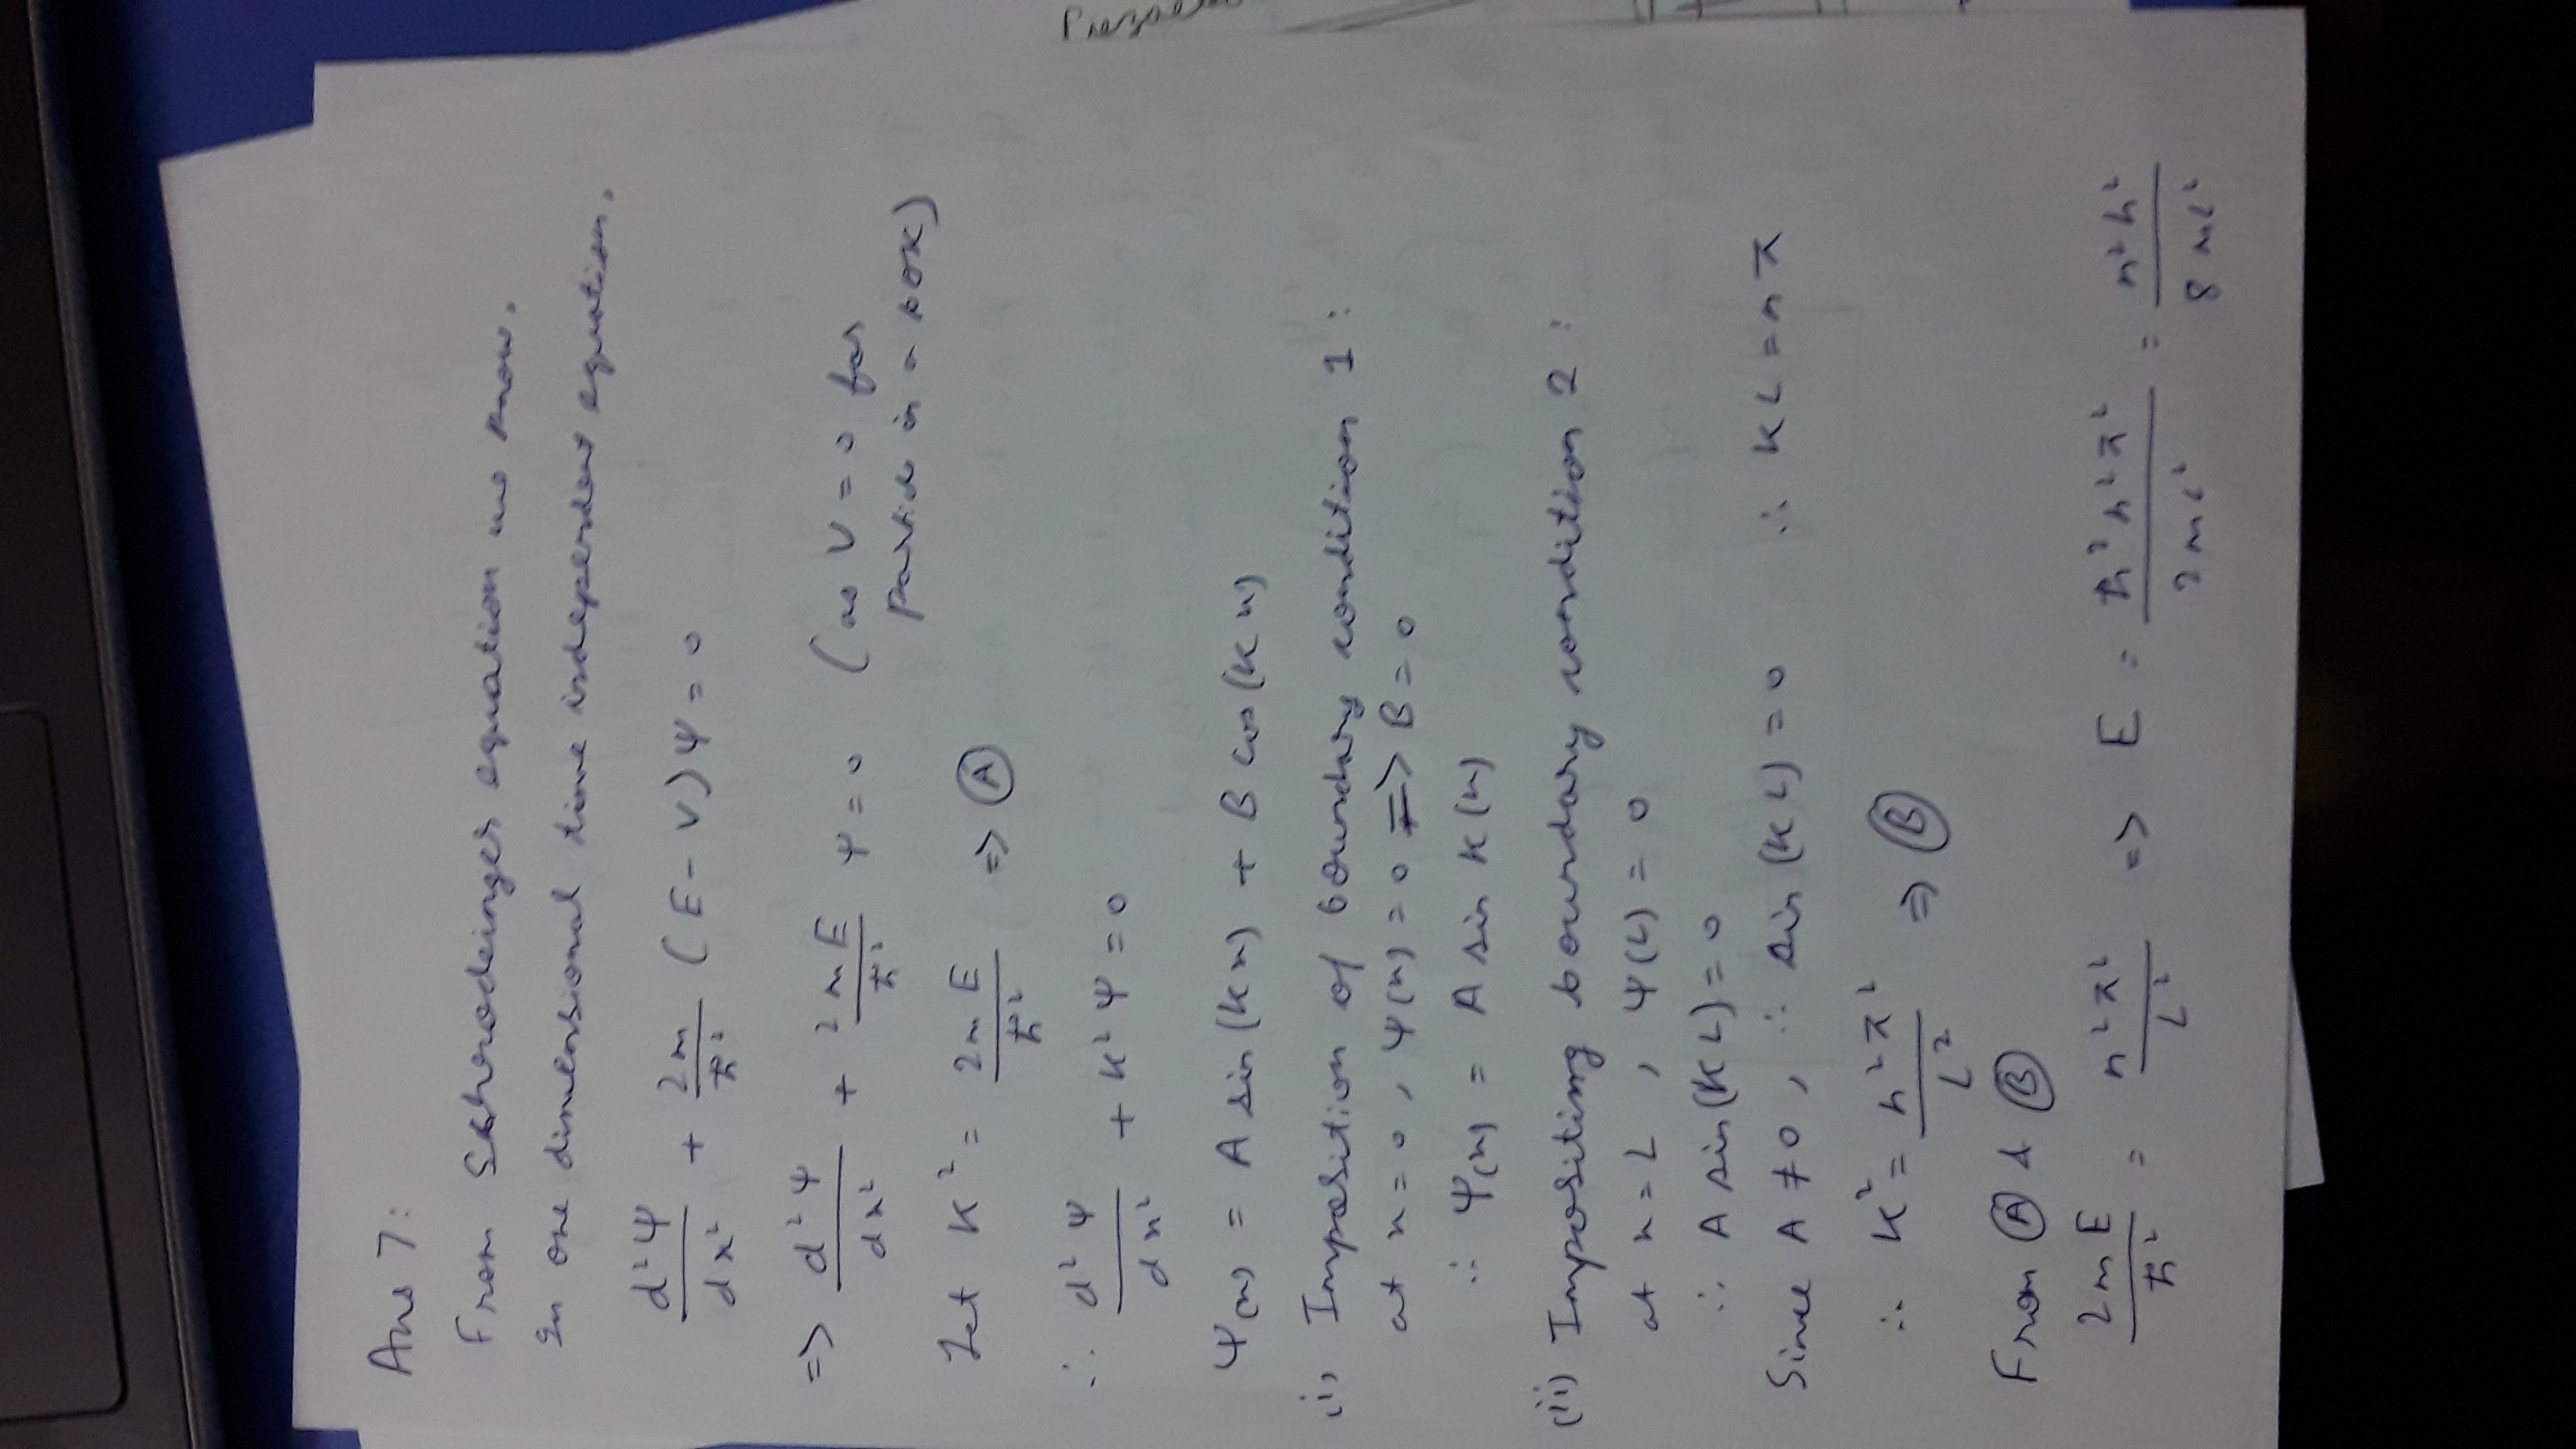 Ans 7:
From Schrodeinger equation we know.
In one dimensional time independent equation.
d²Ψ/dx² + 2m/ħ² (E - V) Ψ = 0
=> d²Ψ/dx² + 2mE/ħ² Ψ = 0 (as V = 0 for
particle in a box)
Let K² = 2mE/ħ² => Ⓐ
∴ d²Ψ/dx² + K²Ψ = 0
Ψ(x) = A sin(Kx) + B cos(Kx)
(i) Imposition of boundary condition 1:
at x = 0, Ψ(x) = 0 => B = 0
∴ Ψ(x) = A sin K(x)
(ii) Impositimg boundary condition 2:
at x = L, Ψ(L) = 0
∴ A sin(KL) = 0
Since A ≠ 0, ∴ sin(KL) = 0 ∴ KL = nπ
∴ K² = n²π²/L² => Ⓑ
From Ⓐ & Ⓑ
2mE/ħ² = n²π²/L² => E = ħ²n²π²/2mL² = n²h²/8mL²